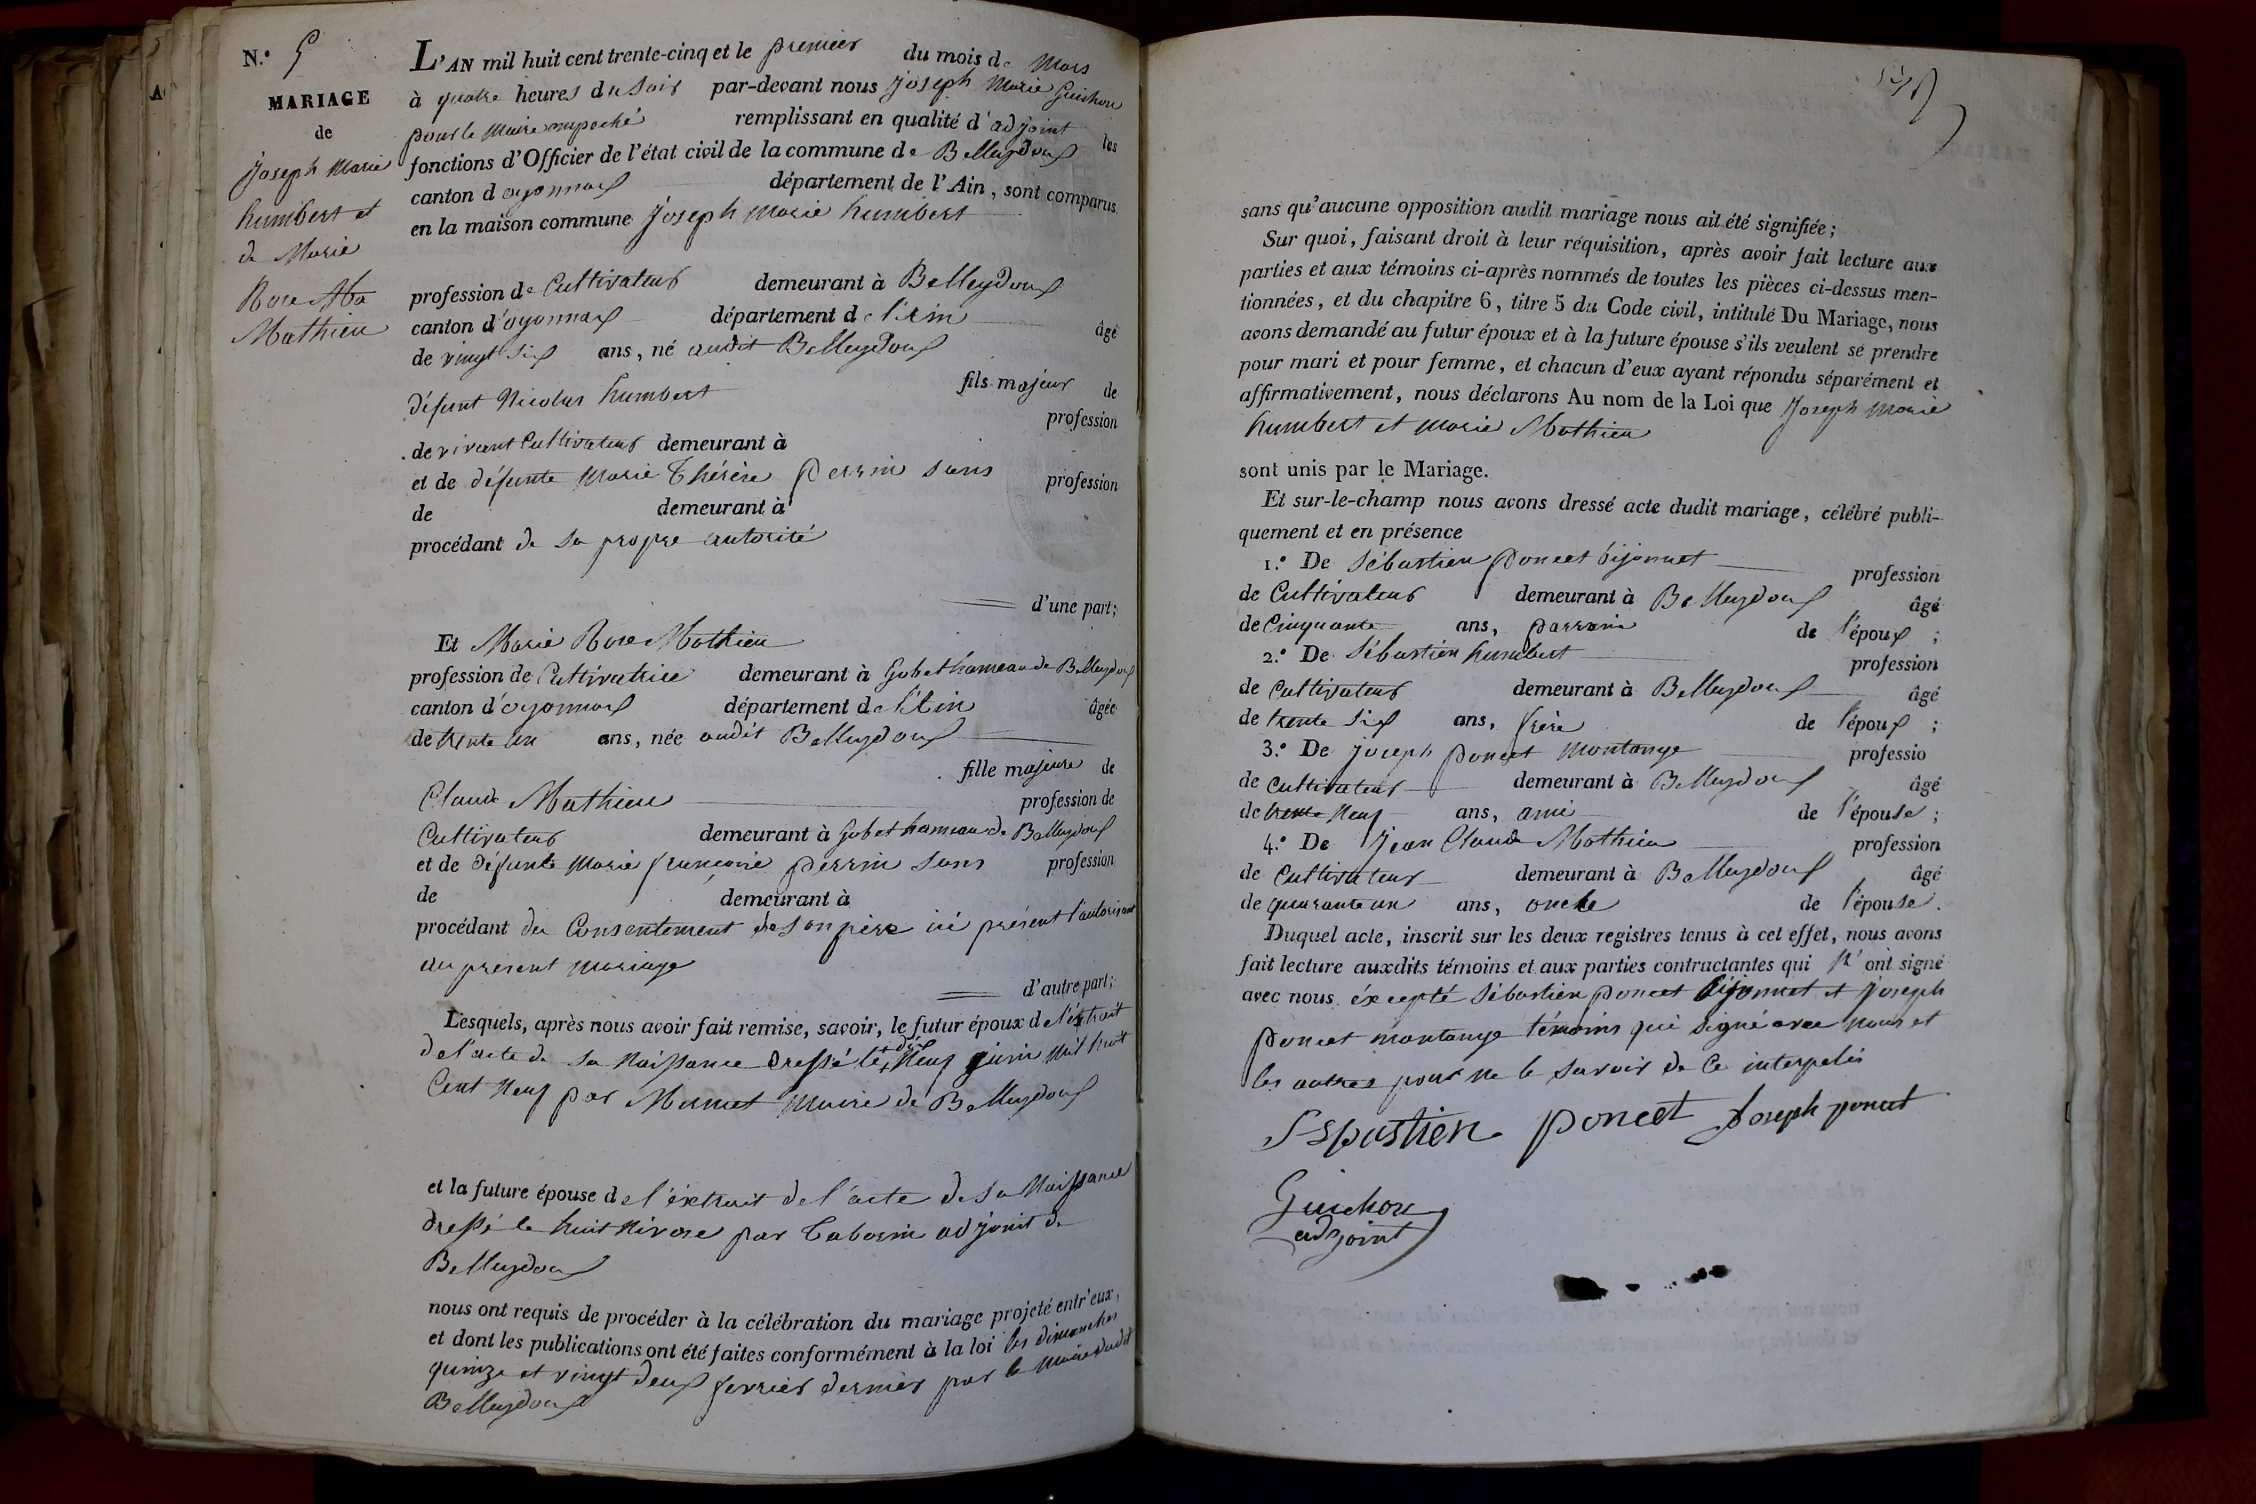 N.° 5
MARIAGE
de
Joseph Marie
humbert et
de Marie
Rose Ma
Mathieu
L'AN mil huit cent trente-cinq et le premier du mois de Mars
à quatre heures du soir par-devant nous Joseph Marie Guichon
pour le Maire empeché remplissant en qualité d'adjoint les
fonctions d'Officier de l'état civil de la commune de Belleydoux
canton d'oyonnax département de l'Ain, sont comparus
en la maison commune Joseph Marie humbert
profession de Cultivateur demeurant à Belleydoux
canton d'oyonnax département de l'Ain âgé
de vingt six ans, né audit Belleydoux
fils majeur de
défunt Nicolas humbert profession
de vivant Cultivateur demeurant à
et de défunte Marie Thérèse Perrin sans profession
de demeurant à
procédant de sa propre autorité
d'une part;
Et Marie Rose Mathieu
profession de Cultivatrice demeurant à Gobet hameau de Belleydoux
canton d'oyonnax département de l'Ain âgée
de trente un ans, née audit Belleydoux
fille majeure de
Claude Mathieu profession de
Cultivateur demeurant à Gobet hameau de Belleydoux
et de défunte Marie françoise perrin sans profession
de demeurant à
procédant du Consentement de son père ici présent l'autorisant
au présent mariage
d'autre part;
Lesquels, après nous avoir fait remise, savoir, le futur époux de l'éxtrait
de l'acte de sa Naissance dressé le dix Neuf juin mil huit
Cent Neuf par Mermet Maire de Belleydoux
et la future épouse de l'éxtrait de l'acte de sa Naissance
dressé le huit Nivose par Tabourin adjoint de
Belleydoux
nous ont requis de procéder à la célébration du mariage projeté entr'eux,
et dont les publications ont été faites conformément à la loi les dimanches
quinze et vingt deux fevrier dernier par le Maire dudit
Belleydoux
sans qu'aucune opposition audit mariage nous ait été signifiée;
Sur quoi, faisant droit à leur réquisition, après avoir fait lecture aux
parties et aux témoins ci-après nommés de toutes les pièces ci-dessus men-
tionnées, et du chapitre 6, titre 5 du Code civil, intitulé Du Mariage, nous
avons demandé au futur époux et à la future épouse s'ils veulent se prendre
pour mari et pour femme, et chacun d'eux ayant répondu séparément et
affirmativement, nous déclarons Au nom de la Loi que Joseph Marie
humbert et Marie Mathieu
sont unis par le Mariage.
Et sur-le-champ nous avons dressé acte dudit mariage, célébré publi-
quement et en présence
1.° De Sébastien Poncet bijonnet profession
de Cultivateur demeurant à Belleydoux âgé
de Cinquante ans, parrain de l'époux ;
2.° De Sébastien humbert profession
de Cultivateur demeurant à Belleydoux âgé
de trente six ans, frère de l'époux ;
3.° De Joseph Poncet Montange professio
de Cultivateur demeurant à Belleydoux âgé
de trente Neuf ans, ami de l'épouse ;
4.° De Jean Claude Mathieu profession
de Cultivateur demeurant à Belleydoux âgé
de quarante un ans, oncle de l'épouse.
Duquel acte, inscrit sur les deux registres tenus à cet effet, nous avons
fait lecture auxdits témoins et aux parties contractantes qui n'ont signé
avec nous éxcepté Sébastien Poncet bijonnet et Joseph
Poncet Montange témoins qui signé avec nous et
les autres pour ne le savoir de ce interpelés
Sepastien Poncet Joseph poncet
Guichon
adjoint